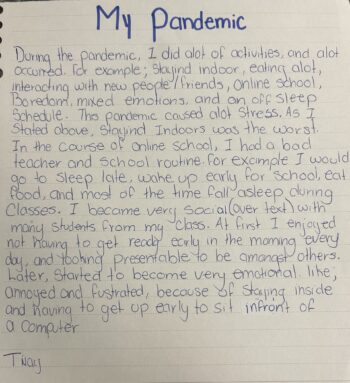 My Pandemic
During the pandemic, I did alot of activities, and alot
occurred. For example; Stayind indoor, eating alot,
interacting with new people/friends, online school,
Boredom, mixed emotions, and an off sleep
Schedule. The pandemic caused alot stress, As I
Stated above, Stayind Indoors was the worst.
In the course of online school, I had a bad
teacher and school routine. for example I would
go to sleep late, wake up early for school, eat
food, and most of the time fall asleep during
Classes. I became very social (over text) with
many students from my class. At first I enjoyed
not having to get ready early in the morning every
day, and looking presentable to be amongst others.
Later, started to become very emotional like;
annoyed and fustrated, because of staying inside
and having to get up early to sit infront of
a computer